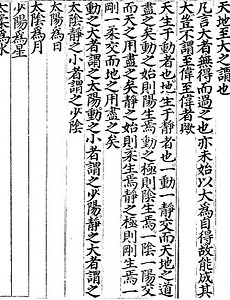 天地至大之謂也
凡言大者無得而過之也亦未始以大為自得故能成其
大豈不謂至偉至偉者歟
天生于動者也地生于靜者也一動一靜交而天地之道
盡之矣動之始則陽生焉動之極則陰生焉一陰一陽交
而天之用盡之矣靜之始則柔生焉靜之極則剛生焉一
剛一柔交而地之用盡之矣
動之大者謂之太陽動之小者謂之少陽靜之大者謂之
太陰靜之小者謂之少陰
太陽為日
太陰為月
少陽為星
太柔為水